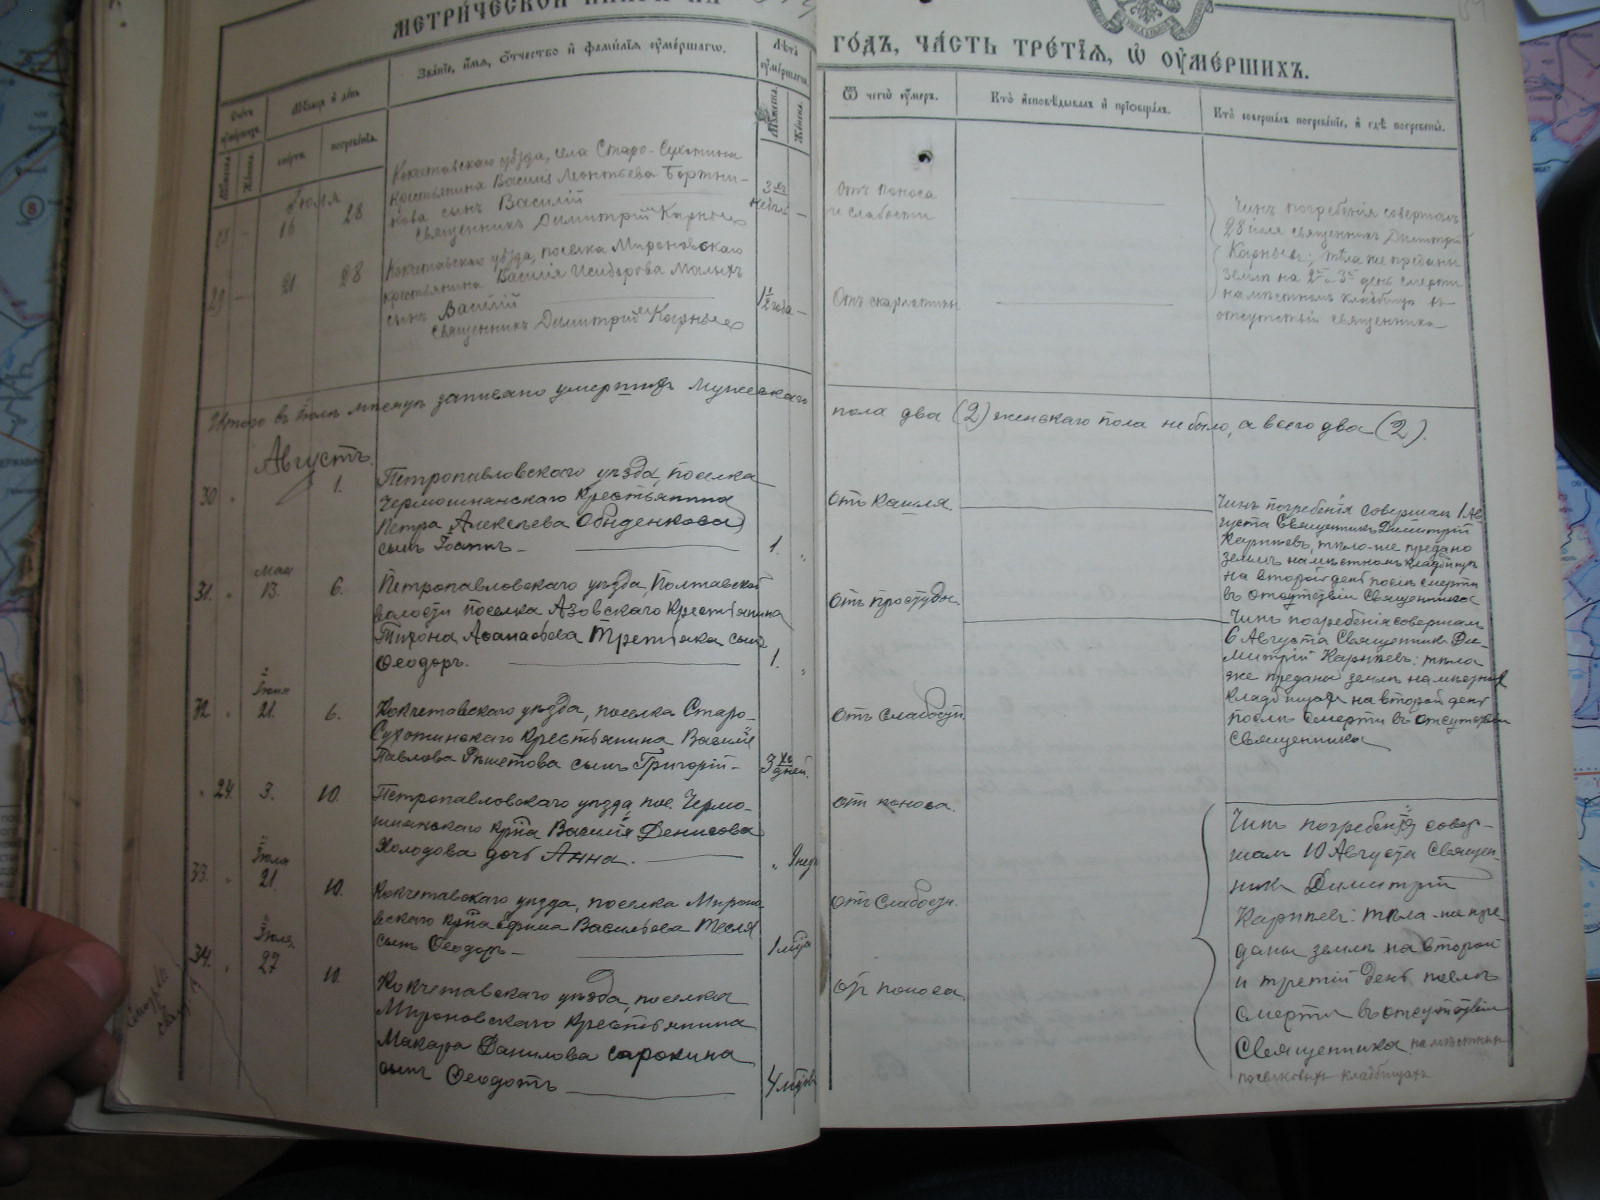 МЕТРИЧЕСКОЙ КНИГИ НА
ГОДЪ, ЧАСТЬ ТРЕТІЯ, Ѡ ОУМЕРШИХЪ.
Званіе, имя, отчество и фамилія оумершаго.
Мѣсяцъ и день
смерти.
погребенія.
Лѣта оумершаго
Мужеска.
Женска.
Ѿ чего оумеръ.
Кто исповѣдывалъ и пріобщалъ.
Кто совершалъ погребеніе, и гдѣ погребены.
Іюля
28 - 16 28
Кокчетавскаго уѣзда, села Старо-Сухотина
крестьянина Василія Леонтьева Бортни-
кова сынъ Василій
Священникъ Димитрій Карпѣевъ
3хъ недѣль -
Отъ поноса
и слабости
Чинъ погребенія совершалъ
28 іюля священникъ Димитрій
Карпѣевъ; тѣла же преданы
землѣ на 2й и 3й день смерти
на мѣстномъ кладбищѣ въ
отсутствіи священника
29 - 21 28
Кокчетавскаго уѣзда, поселка Мироновскаго
крестьянина Василія Исидорова Малыхъ
сынъ Василій
Священникъ Димитрій Карпѣевъ
1 1/2 года -
Отъ скарлатины
Итого въ Іюлѣ мѣсяцѣ записано умершихъ Мужескаго
пола два (2) женскаго пола не было, а всего два (2).
Августъ.
30 " 1.
Петропавловскаго уѣзда, поселка
Чермошнянскаго крестьянина
Петра Алексѣева Обыденкова
сынъ Іоаннъ -
1. "
отъ кашля
Чинъ погребенія совершалъ 1 Ав-
густа Священникъ Димитрій
Карпѣевъ, тѣло-же предано
землѣ на мѣстномъ кладбищѣ
на второй день послѣ смерти
въ отсутствіи Священника
31. " Мая 13. 6.
Петропавловскаго уѣзда, Полтавской
волости поселка Азовскаго крестьянина
Тихона Аѳанасьева Третьяка сынъ
Ѳеодоръ.
1. "
Отъ простуды.
Чинъ погребенія совершалъ
6 Августа Священникъ Ди-
митрій Карпѣевъ: тѣла
же преданы землѣ на мѣстныхъ
кладбищахъ на второй день
послѣ смерти въ отсутствіи
Священника
32 " Іюня 21. 6.
Кокчетавскаго уѣзда, поселка Старо-
Сухотинскаго крестьянина Василія
Павлова Рѣшетова сынъ Григорій -
3хъ дней.
Отъ слабости.
" 24. 3. 10.
Петропавловскаго уѣзда пос. Чермо-
шнянскаго кр-на Василія Денисова
Холодова дочь Анна.
" 9 нед.
отъ поноса.
Чинъ погребенія совер-
шалъ 10 Августа Священ-
никъ Димитрій
Карпѣевъ: тѣла-же пре-
даны землѣ на второй
и третій день послѣ
смерти въ отсутствіи
Священника на мѣстныхъ
поселковыхъ кладбищахъ
33. " Іюля 21. 10.
Кокчетавскаго уѣзда, поселка Мироно-
вскаго кр-на Ефима Васильева Тесля
сынъ Ѳеодоръ -
1 мѣся
отъ слабости.
34. " Іюля 27 10.
Кокчетавскаго уѣзда, поселка
Мироновскаго крестьянина
Макара Данилова Сорокина
сынъ Ѳеодотъ
4 мѣсяцевъ
отъ поноса.